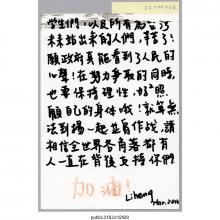 學生們，以及所有為台灣
未來站出來的人們，辛苦了！
願政府真能看到了人民的
心聲！在努力爭取的同時，
也要保持理性，加照
顧自己的身体哦！就算無
法到場一起並肩作戰，請
相信全世界各角落都有
人一直在背後支持你們
加油！
Liheng
Mar. 2014
public.318.io/12420